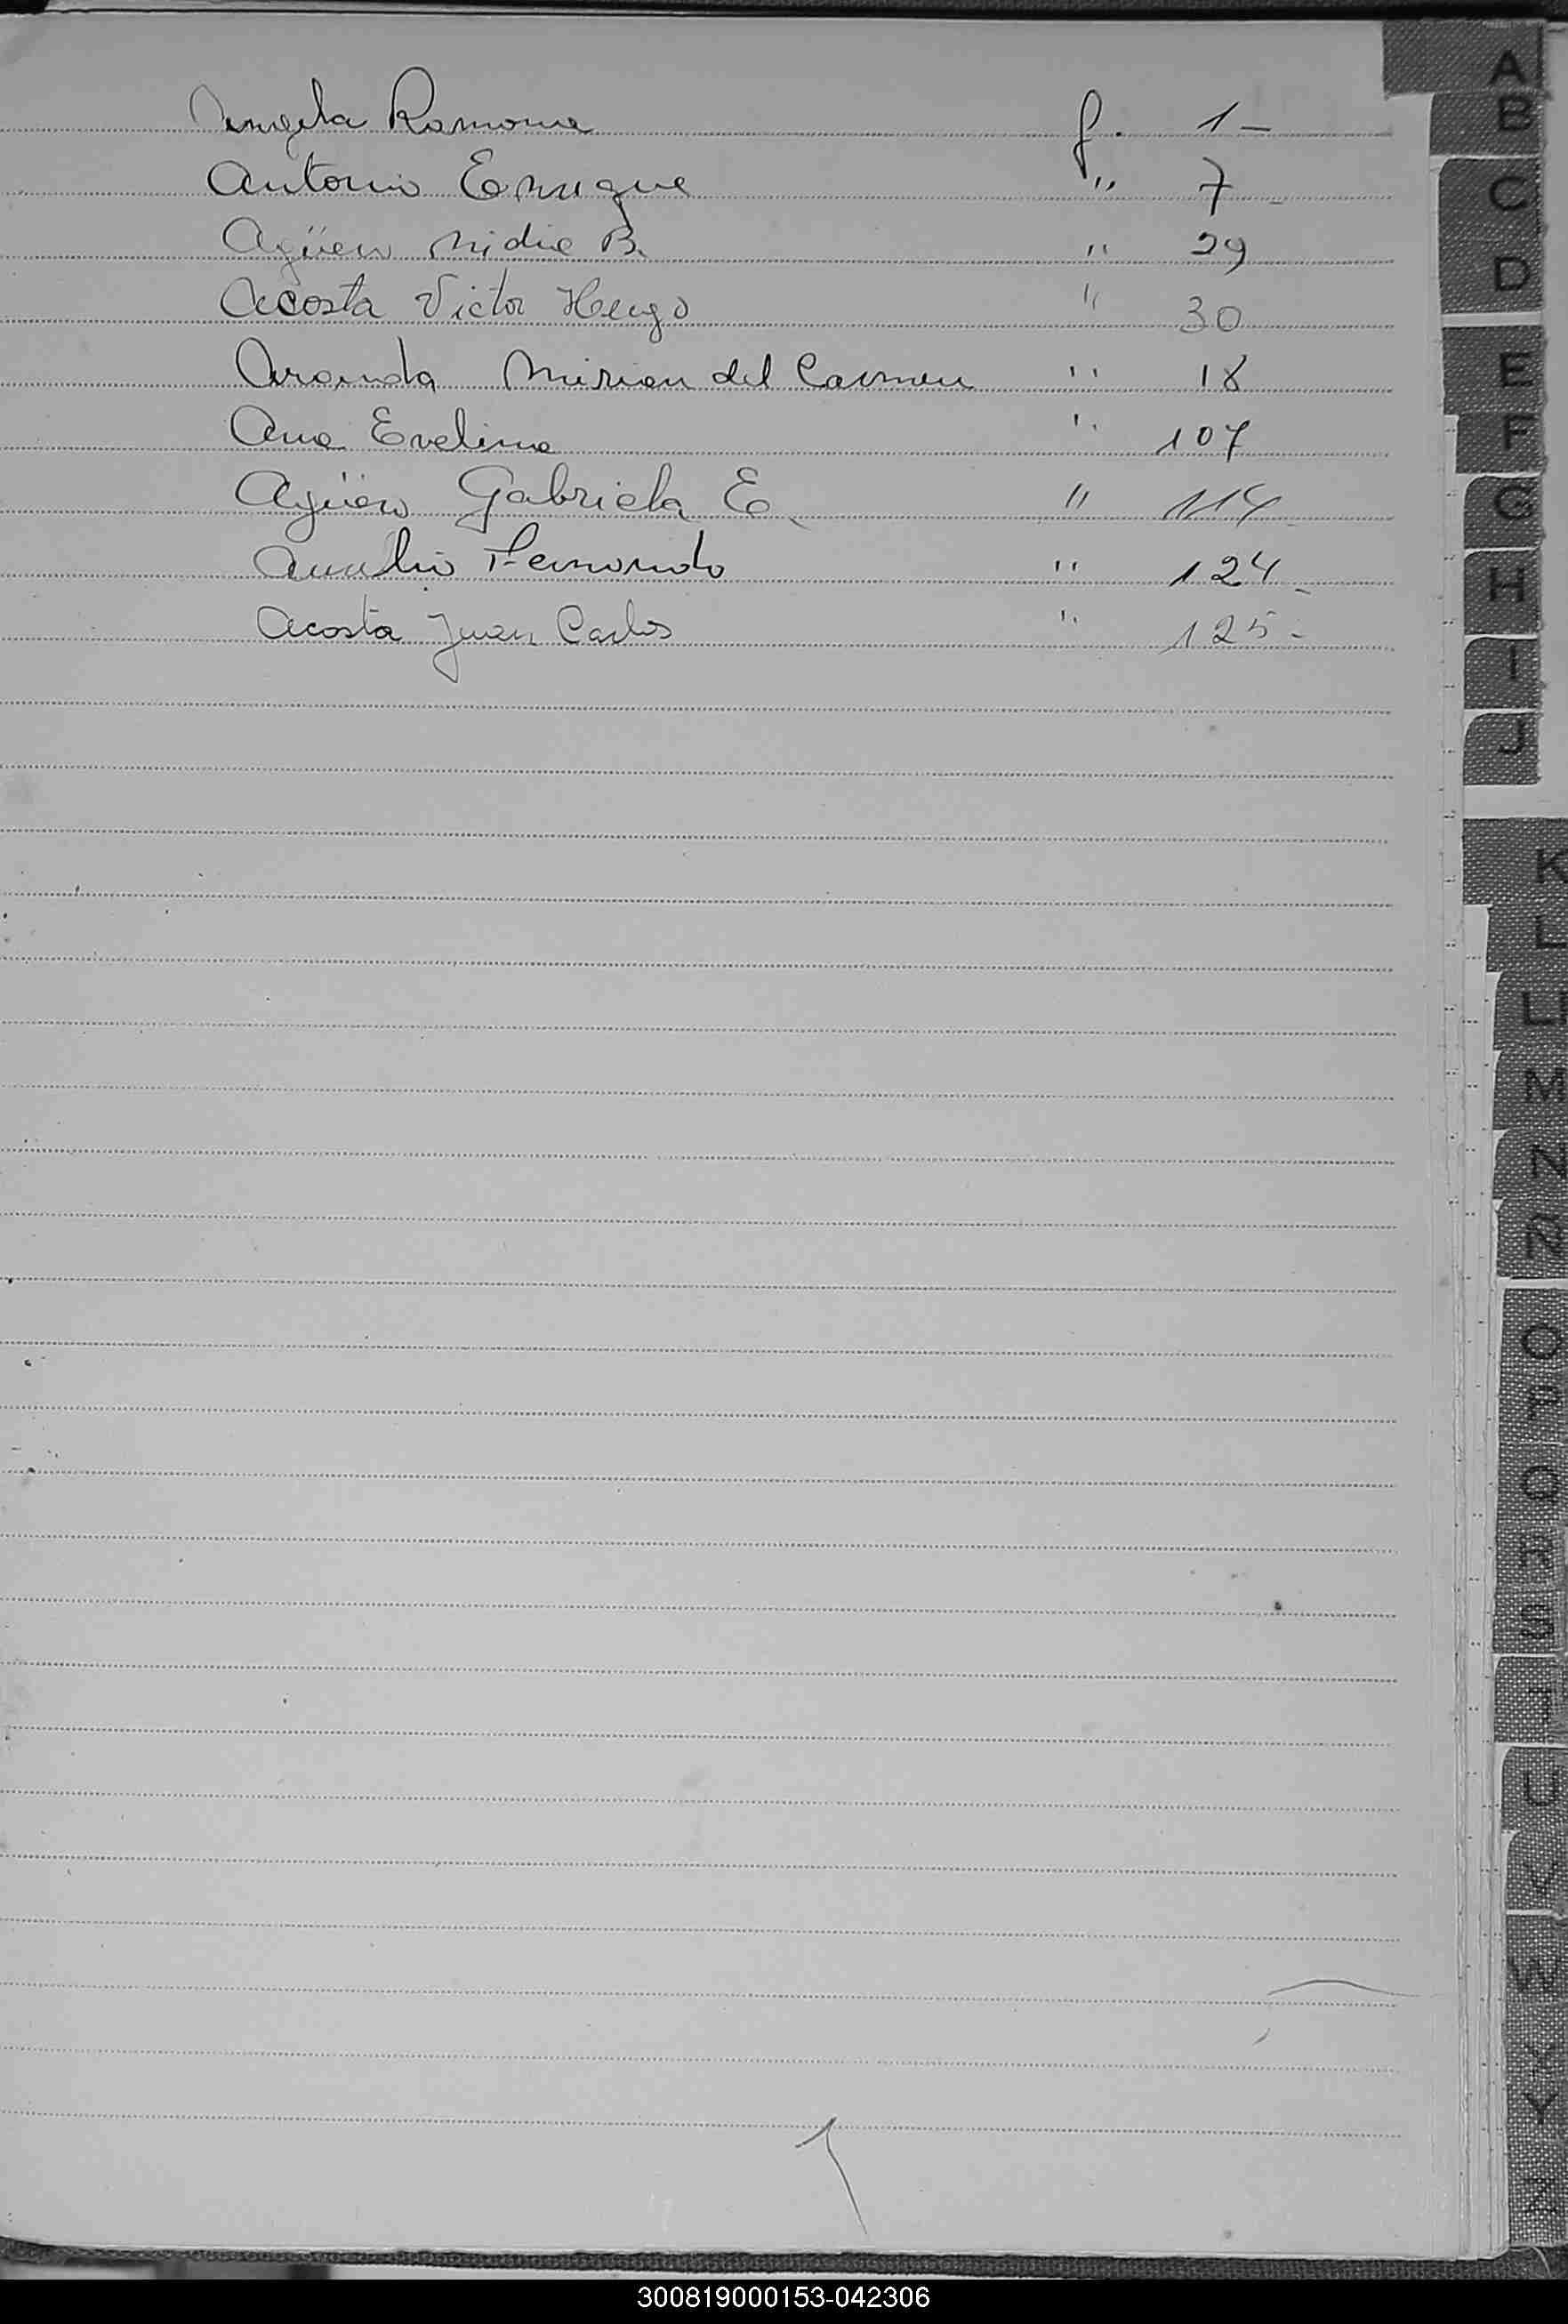 Angela Ramona f. 1 -
Antonio Enrique " 7 -
Agüero Nidia B. " 29
Acosta Victor Hugo " 30
Aranda Mirian del Carmen " 18
Ana Evelina " 107
Agüero Gabriela E. " 114 -
Aurelio Fernando " 124 -
Acosta Juan Carlos " 125 -
A
B
C
D
E
F
G
H
I
J
K
L
LL
M
N
Ñ
O
P
Q
R
S
T
U
V
W
X
Y
Z
300819000153-042306